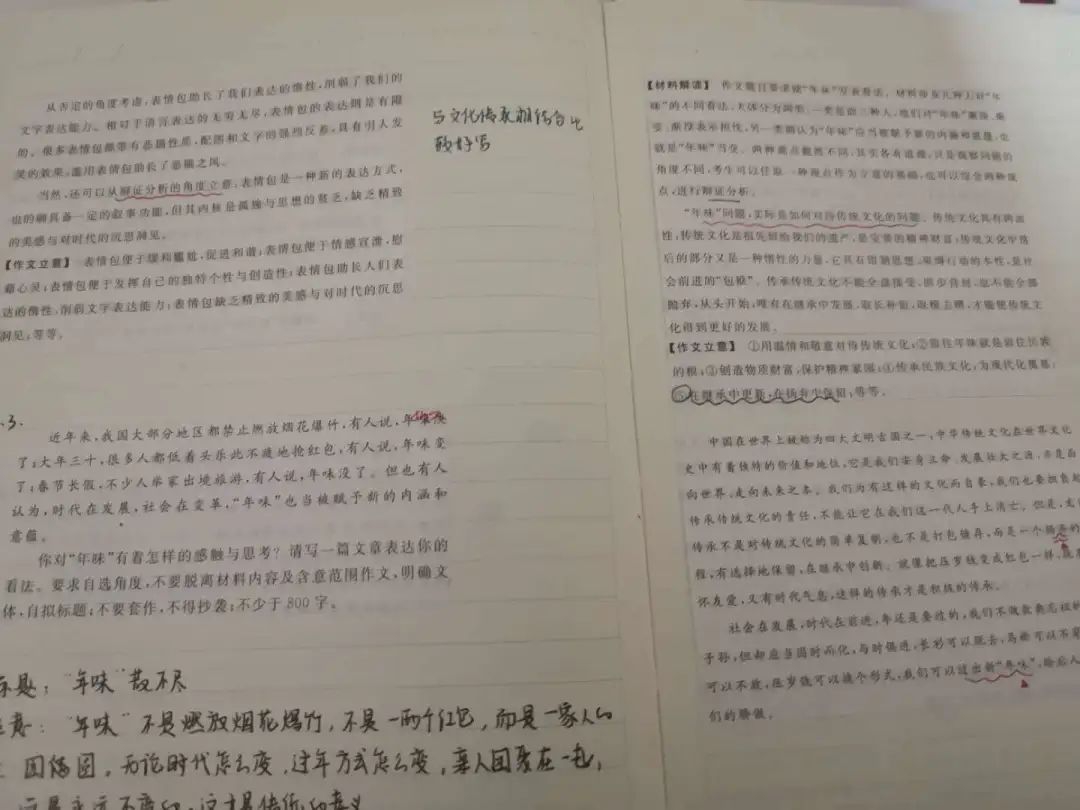 从否定的角度考虑,表情包助长了我们表达的惰性,削弱了我们的
文字表达能力。相对于语言表达的无穷无尽,表情包的表达则是有限
的。很多表情包都带有恶搞性质,配图和文字的强烈反差,具有引人发
笑的效果,滥用表情包助长了恶搞之风。
当然,还可以从辩证分析的角度立意,表情包是一种新的表达方式,
也的确具备一定的叙事功能,但其内核是孤独与思想的贫乏,缺乏精致
的美感与对时代的沉思洞见。
【作文立意】 表情包便于缓和尴尬,促进和谐;表情包便于情感宣泄,慰
藉心灵;表情包便于发挥自己的独特个性与创造性;表情包助长人们表
达的惰性,削弱文字表达能力;表情包缺乏精致的美感与对时代的沉思
洞见;等等。
与文化传承相结合比
较好写
3.
近年来,我国大部分地区都禁止燃放烟花爆竹,有人说,年味淡
了;大年三十,很多人都低着头乐此不疲地抢红包,有人说,年味变
了;春节长假,不少人举家出境旅游,有人说,年味没了。但也有人
认为,时代在发展,社会在变革,“年味”也当被赋予新的内涵和
意蕴。
你对“年味”有着怎样的感触与思考?请写一篇文章表达你的
看法。要求自选角度,不要脱离材料内容及含意范围作文,明确文
体,自拟标题;不要套作,不得抄袭;不少于800字。
标题:“年味”散不尽
立意:“年味”不是燃放烟花爆竹,不是一两个红包,而是一家人的
团团圆,无论时代怎么变,过年方式怎么变,亲人团聚在一起,
是永远不变的,这才是传统的意义
【材料解读】 作文题目要求就“年味”发表看法。材料涉及几种人对“年
味”的不同看法,大体分为两类:一类是前三种人,他们对“年味”
变、渐没表示担忧,另一类则认为“年味”应当被赋予新的内涵和意蕴,也
就是“年味”当变。两种观点截然不同,其实各有道理,只是观察问题的
角度不同,考生可以任取一种观点作为立意的基础,也可以综合两种观
点,进行辩证分析。
“年味”问题,实际是如何对待传统文化的问题。传统文化具有两面
性:传统文化是祖先留给我们的遗产,是宝贵的精神财富;传统文化中落
后的部分又是一种惰性的力量,它具有钳制思想、束缚行动的本性,是社
会前进的“包袱”。传承传统文化不能全盘接受,固步自封,也不能全部
抛弃,从头开始,唯有在继承中发展,取长补短,取精去糟,才能使传统文
化得到更好的发展。
【作文立意】 ①用温情和敬意对待传统文化;②留住年味就是留住民族
的根;③创造物质财富,保护精神家园;④传承民族文化,为现代化奠基;
⑤在继承中更新,在扬弃中保留;等等。
中国在世界上被称为四大文明古国之一,中华传统文化在世界文化
史中有着独特的价值和地位,它是我们安身立命、发展壮大之源,亦是面
向世界、走向未来之本。我们为有这样的文化而自豪,我们也要担负起
传承传统文化的责任,不能让它在我们这一代人手上消亡。但是,文化
传承不是对传统文化的简单复制,也不是打包储存,而是一个扬弃的
程,有选择地保留,在继承中创新。就像把压岁钱变成红包一样,既
怀友爱,又有时代气息,这样的传承才是积极的传承。
社会在发展,时代在前进,年还是要过的,我们不做数典忘祖的
子孙,但却应当因时而化,与时俱进,长衫可以脱去,马褂可以不穿
可以不放,压岁钱可以换个形式,我们可以过出新“年味”,给后人
们的骄傲。